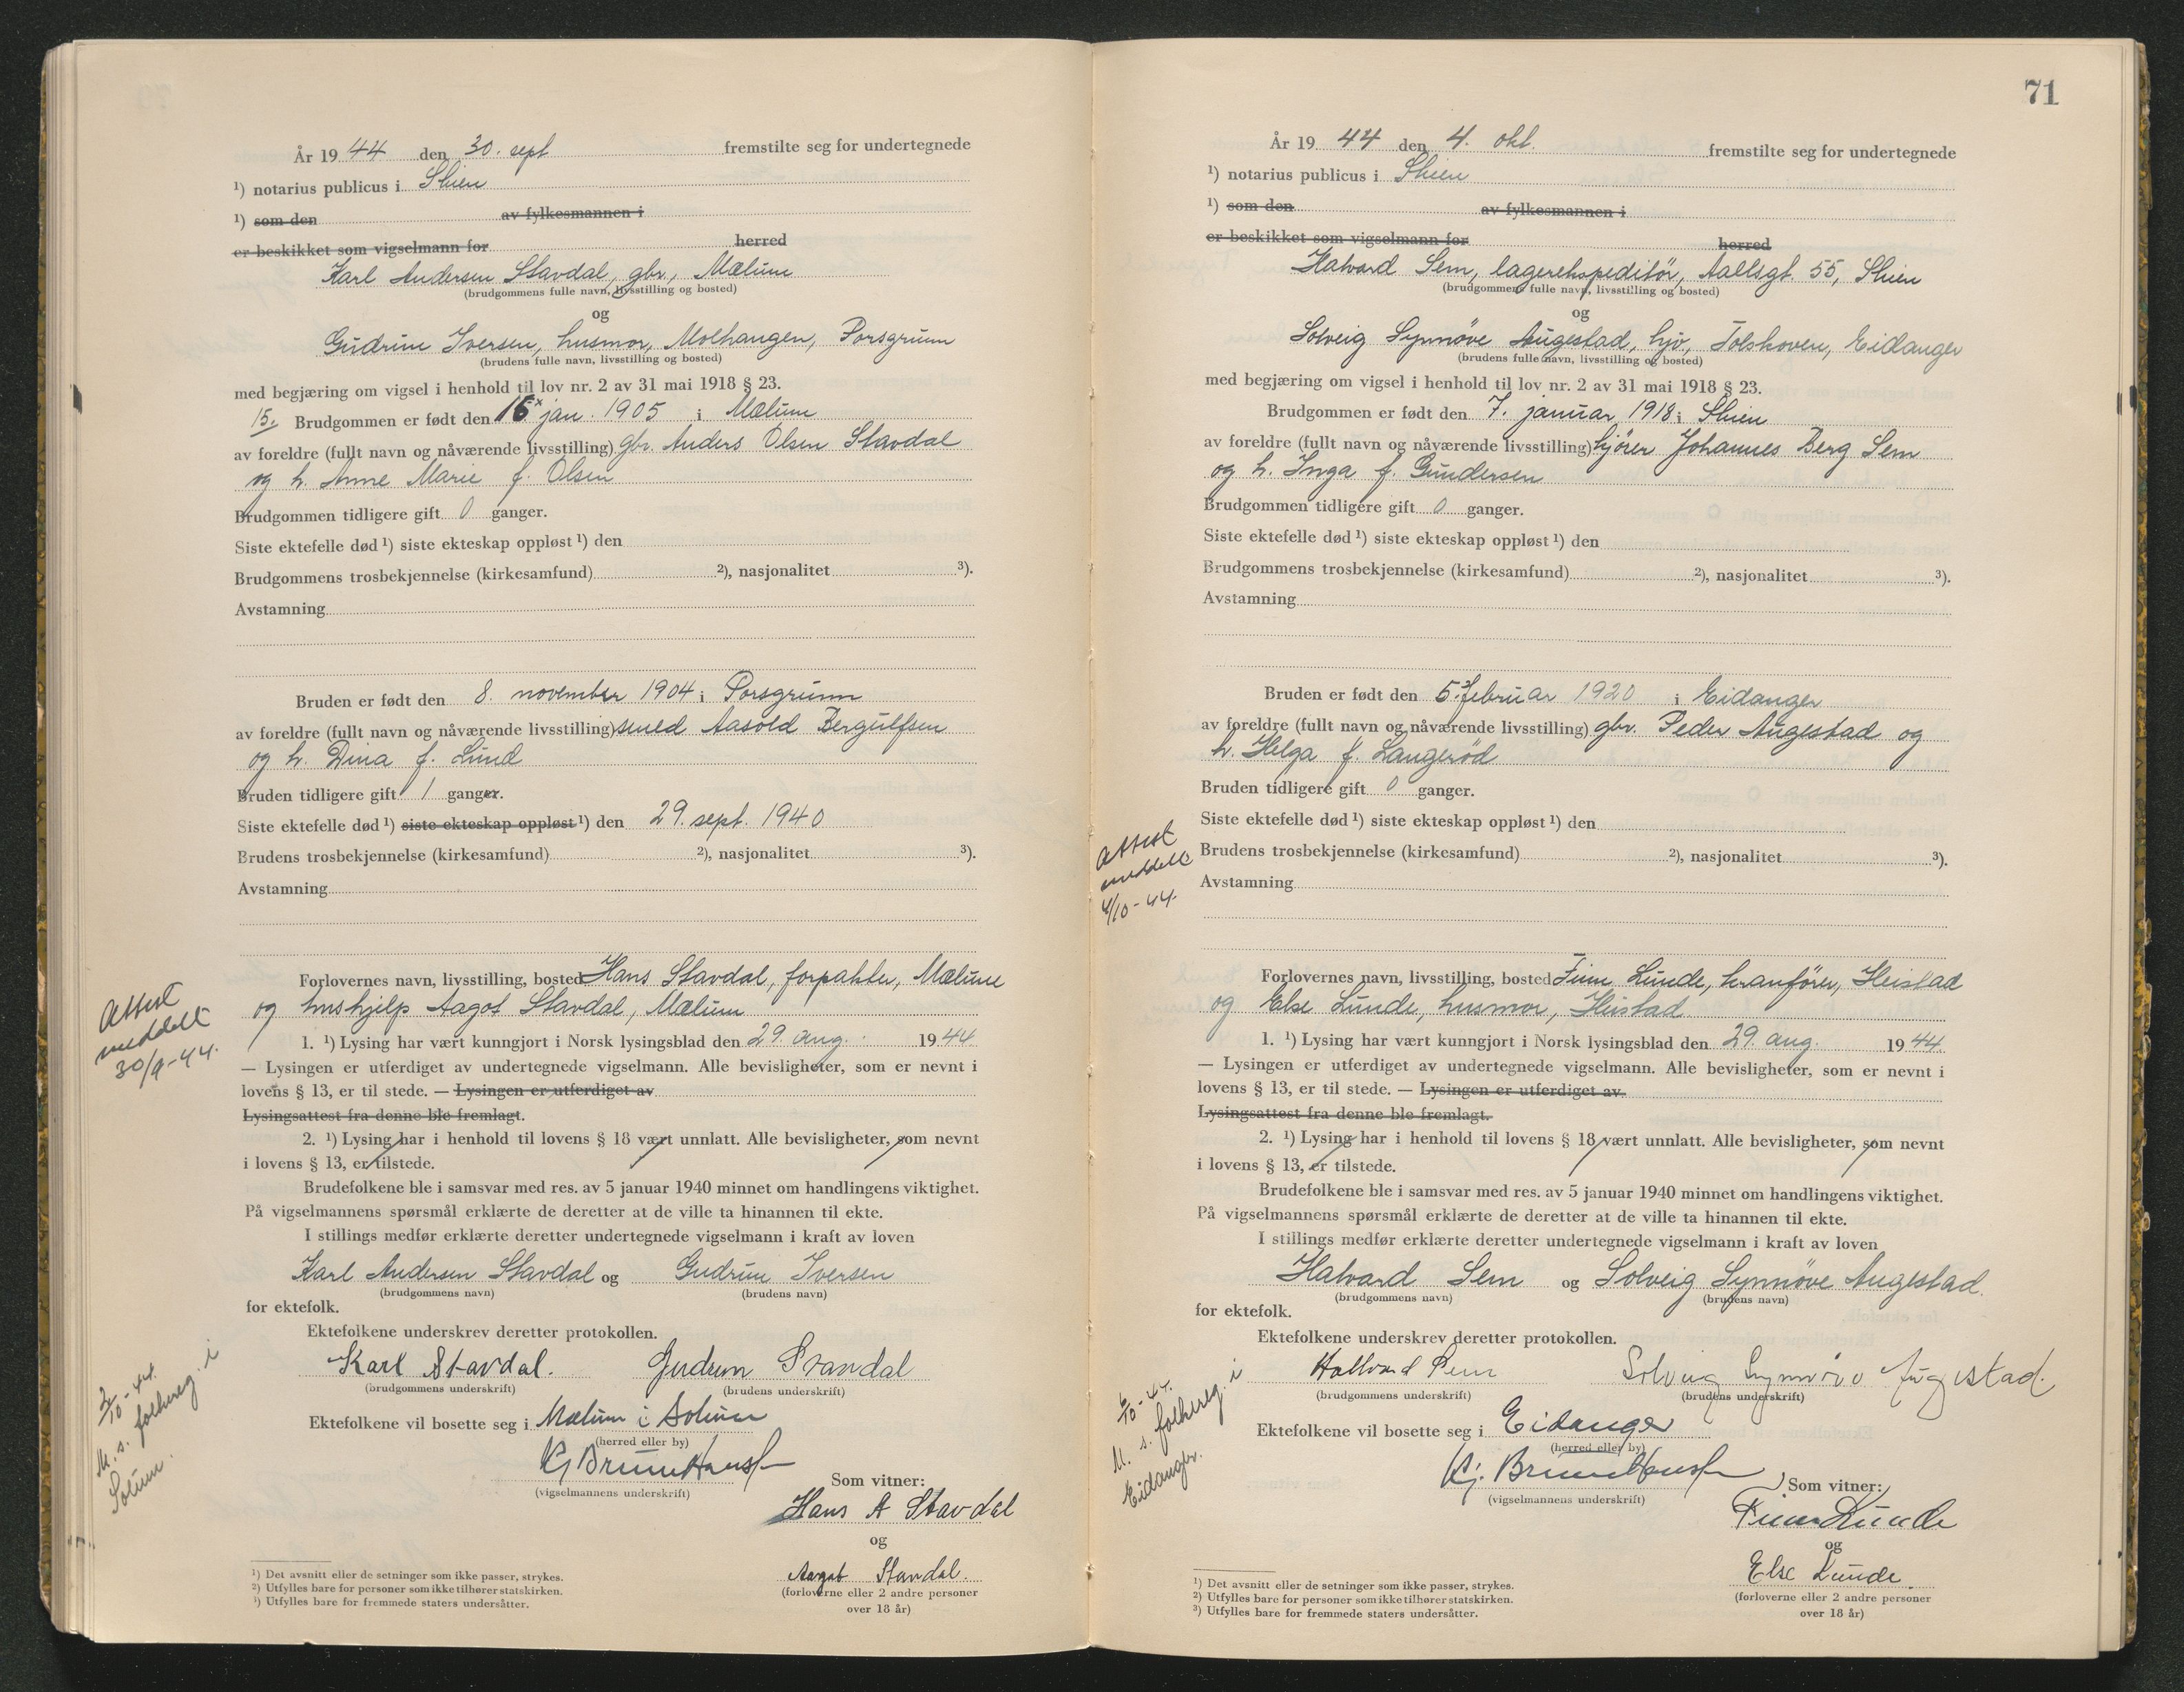 År 19 44 den 30. sept fremstilte seg for undertegnede
¹) notarius publicus i Skien
¹) som den av fylkesmannen i
er beskikket som vigselmann for herred
Karl Andersen Stavdal, gbr., Mælum
(brudgommens fulle navn, livsstilling og bosted)
og
Gudrun Iversen, husmor, Molhaugen, Porsgrunn
(brudens fulle navn, livsstilling og bosted)
med begjæring om vigsel i henhold til lov nr. 2 av 31 mai 1918 § 23.
15. Brudgommen er født den 15ˣ jan. 1905 i Mælum
av foreldre (fullt navn og nåværende livsstilling) gbr. Anders Olsen Stavdal
og h. Anne Marie f. Olsen
Brudgommen tidligere gift 0 ganger.
Siste ektefelle død ¹) siste ekteskap oppløst ¹) den
Brudgommens trosbekjennelse (kirkesamfund) ²), nasjonalitet ³).
Avstamning
Bruden er født den 8. november 1904 i Porsgrunn
av foreldre (fullt navn og nåværende livsstilling) smed Aasold Bergulfsen
og h. Dina f. Lund
Bruden tidligere gift 1 ganger.
Siste ektefelle død ¹) siste ekteskap oppløst ¹) den 29. sept. 1940
Brudens trosbekjennelse (kirkesamfund) ²), nasjonalitet ³).
Avstamning
Forlovernes navn, livsstilling, bosted Hans Stavdal, forpakter, Mælum
og hushjelp Aagot Stavdal, Mælum
Attest
meddelt
30/9-44.
1. ¹) Lysing har vært kunngjort i Norsk lysingsblad den 29. aug. 19 44
— Lysingen er utferdiget av undertegnede vigselmann. Alle bevisligheter, som er nevnt i
lovens § 13, er til stede. — Lysingen er utferdiget av
Lysingsattest fra denne ble fremlagt.
2. ¹) Lysing har i henhold til lovens § 18 vært unnlatt. Alle bevisligheter, som nevnt
i lovens § 13, er tilstede.
Brudefolkene ble i samsvar med res. av 5 januar 1940 minnet om handlingens viktighet.
På vigselmannens spørsmål erklærte de deretter at de ville ta hinannen til ekte.
I stillings medfør erklærte deretter undertegnede vigselmann i kraft av loven
Karl Andersen Stavdal og Gudrun Iversen
(brudgommens navn) (brudens navn)
for ektefolk.
Ektefolkene underskrev deretter protokollen.
Karl Stavdal. Gudrun Stavdal
(brudgommens underskrift) (brudens underskrift)
Ektefolkene vil bosette seg i Mælum i Solum
(herred eller by)
(vigselmannens underskrift)
Som vitner:
Hans A Stavdal
og
Aagot Stavdal.
(forloverne eller 2 andre personer
over 18 år)
2/10-44.
M. s. folkereg. i
Solum.
¹) Det avsnitt eller de setninger som ikke passer, strykes.
²) Utfylles bare for personer som ikke tilhører statskirken.
³) Utfylles bare for fremmede staters undersåtter.
71
År 19 44 den 4. okt. fremstilte seg for undertegnede
¹) notarius publicus i Skien
¹) som den av fylkesmannen i
er beskikket som vigselmann for herred
Halvard Sem, lagerekspeditör, Aallsgt. 55, Skien
(brudgommens fulle navn, livsstilling og bosted)
og
Solveig Synnöve Augestad, hjv., Tolskoven, Eidanger
(brudens fulle navn, livsstilling og bosted)
med begjæring om vigsel i henhold til lov nr. 2 av 31 mai 1918 § 23.
Brudgommen er født den 7. januar 1918 i Skien
av foreldre (fullt navn og nåværende livsstilling) kjörer Johannes Berg Sem
og h. Inga f. Gundersen
Brudgommen tidligere gift 0 ganger.
Siste ektefelle død ¹) siste ekteskap oppløst ¹) den
Brudgommens trosbekjennelse (kirkesamfund) ²), nasjonalitet ³).
Avstamning
Bruden er født den 5. februar 1920 i Eidanger
av foreldre (fullt navn og nåværende livsstilling) gbr. Peder Augestad og
h. Helga f. Langeröd
Bruden tidligere gift 0 ganger.
Siste ektefelle død ¹) siste ekteskap oppløst ¹) den
Brudens trosbekjennelse (kirkesamfund) ²), nasjonalitet ³).
Avstamning
Attest
meddelt
4/10-44.
Forlovernes navn, livsstilling, bosted Finn Lunde, kranförer, Heistad
og Else Lunde, husmor, Heistad.
1. ¹) Lysing har vært kunngjort i Norsk lysingsblad den 29. aug. 19 44.
— Lysingen er utferdiget av undertegnede vigselmann. Alle bevisligheter, som er nevnt i
lovens § 13, er til stede. — Lysingen er utferdiget av.
Lysingsattest fra denne ble fremlagt.
2. ¹) Lysing har i henhold til lovens § 18 vært unnlatt. Alle bevisligheter, som nevnt
i lovens § 13, er tilstede.
Brudefolkene ble i samsvar med res. av 5 januar 1940 minnet om handlingens viktighet.
På vigselmannens spørsmål erklærte de deretter at de ville ta hinannen til ekte.
I stillings medfør erklærte deretter undertegnede vigselmann i kraft av loven
Halvard Sem og Solveig Synnöve Augestad.
(brudgommens navn) (brudens navn)
for ektefolk.
Ektefolkene underskrev deretter protokollen.
Hallvard Sem Solveig Synnöve Augestad.
(brudgommens underskrift) (brudens underskrift)
Ektefolkene vil bosette seg i Eidanger
(herred eller by)
(vigselmannens underskrift)
Som vitner:
Finn Lunde
og
Else Lunde.
(forloverne eller 2 andre personer
over 18 år)
/10-44.
M. s. folkereg. i
Eidanger.
¹) Det avsnitt eller de setninger som ikke passer, strykes.
²) Utfylles bare for personer som ikke tilhører statskirken.
³) Utfylles bare for fremmede staters undersåtter.